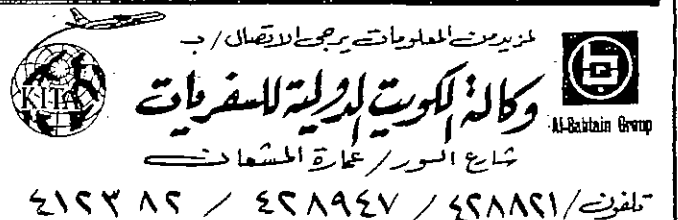 لمزيد من المعلومات يرجى الاتصال / ب
KITA
وكالة الكويت الدولية للسفريات
Al-Babtain Group
شارع السور / عمارة المشعان
تلفون / ٤٢٨٨٢١ / ٤٢٨٩٤٧ / ٤١٢٣٨٢